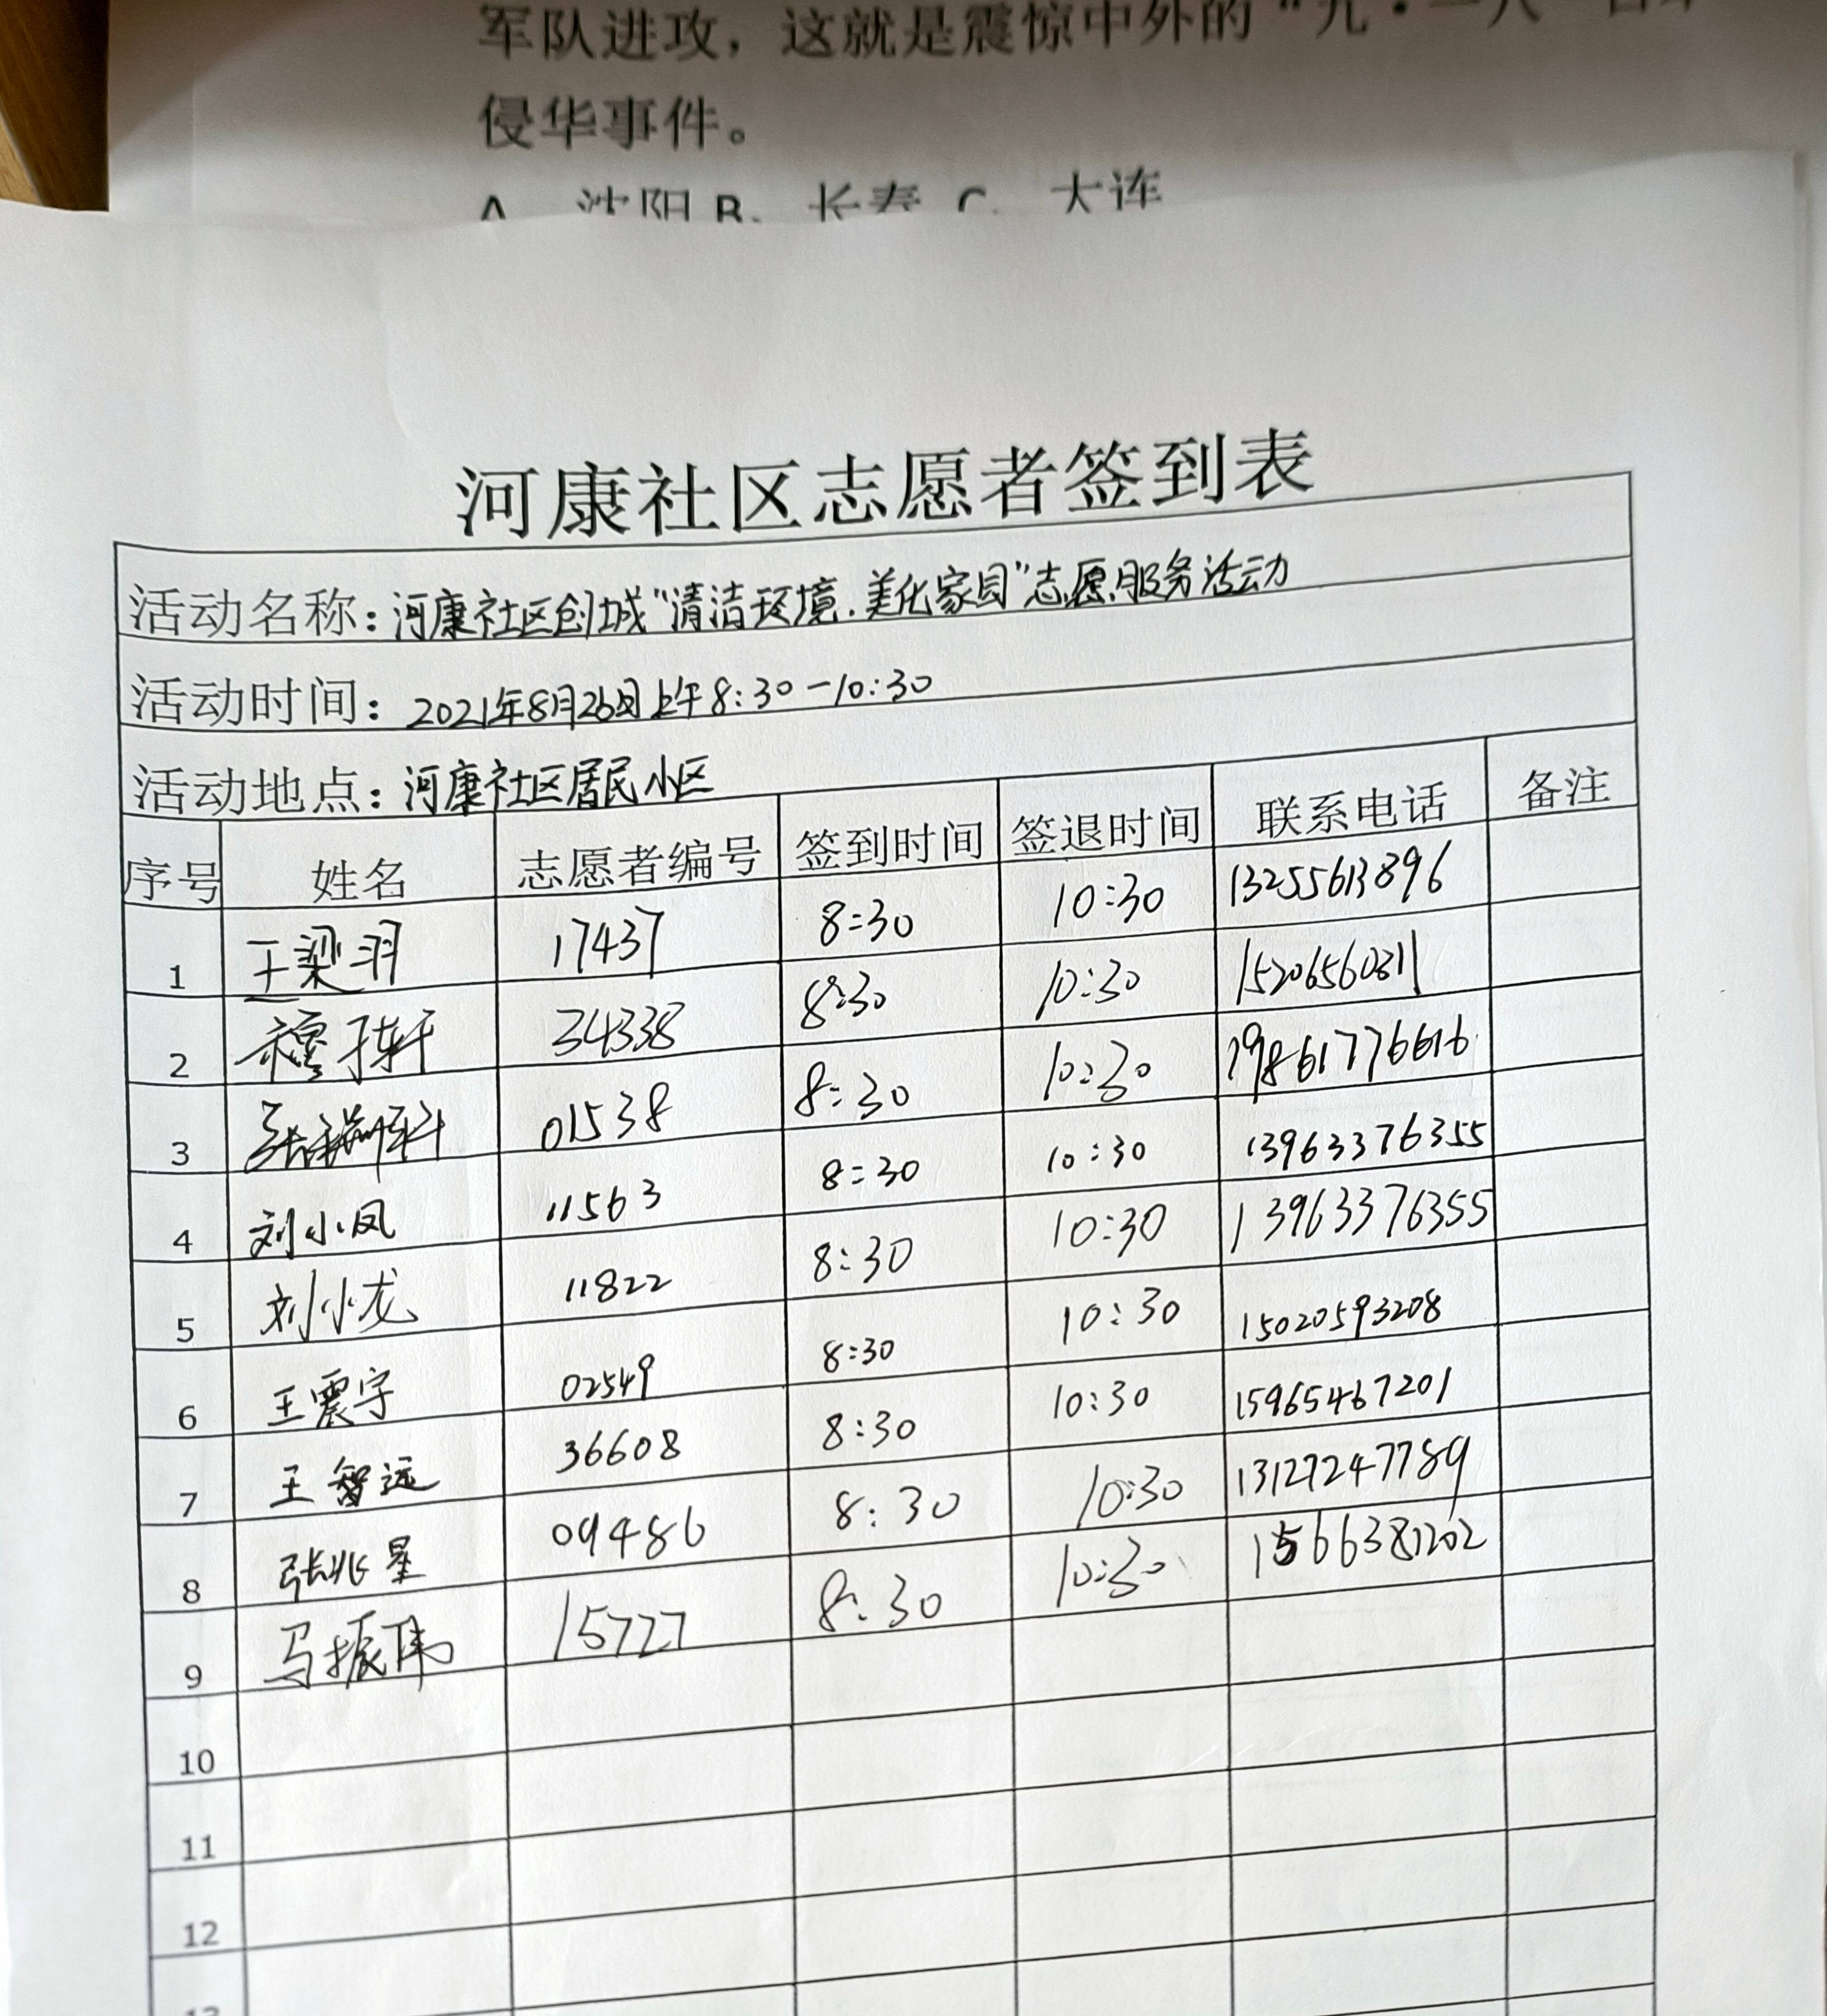 军队进攻，这就是震惊中外的“九·一八”日军
侵华事件。
A、沈阳 B、长春 C、大连
河康社区志愿者签到表
活动名称：河康社区创城“清洁环境.美化家园”志愿服务活动
活动时间：2021年8月26日上午8:30-10:30
活动地点：河康社区居民小区
序号 姓名 志愿者编号 签到时间 签退时间 联系电话 备注
1 王梁羽 17437 8:30 10:30 13255613896
2 穆子轩 34338 8:30 10:30 15206560311
3 张瑞轩 01538 8:30 10:30 19861776616
4 刘小凤 11563 8:30 10:30 13963376355
5 刘小龙 11822 8:30 10:30 13963376355
6 王震宇 02549 8:30 10:30 15020593208
7 王智远 36608 8:30 10:30 15965467201
8 张兆星 09486 8:30 10:30 13127247789
9 马振伟 15727 8:30 10:30 1566381202
10
11
12
13